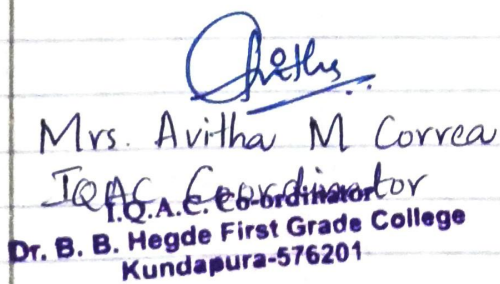 Avitha
Mrs. Avitha M Correa
IQAC Coordinator
I.Q.A.C. Co-ordinator
Dr. B. B. Hegde First Grade College
Kundapura-576201